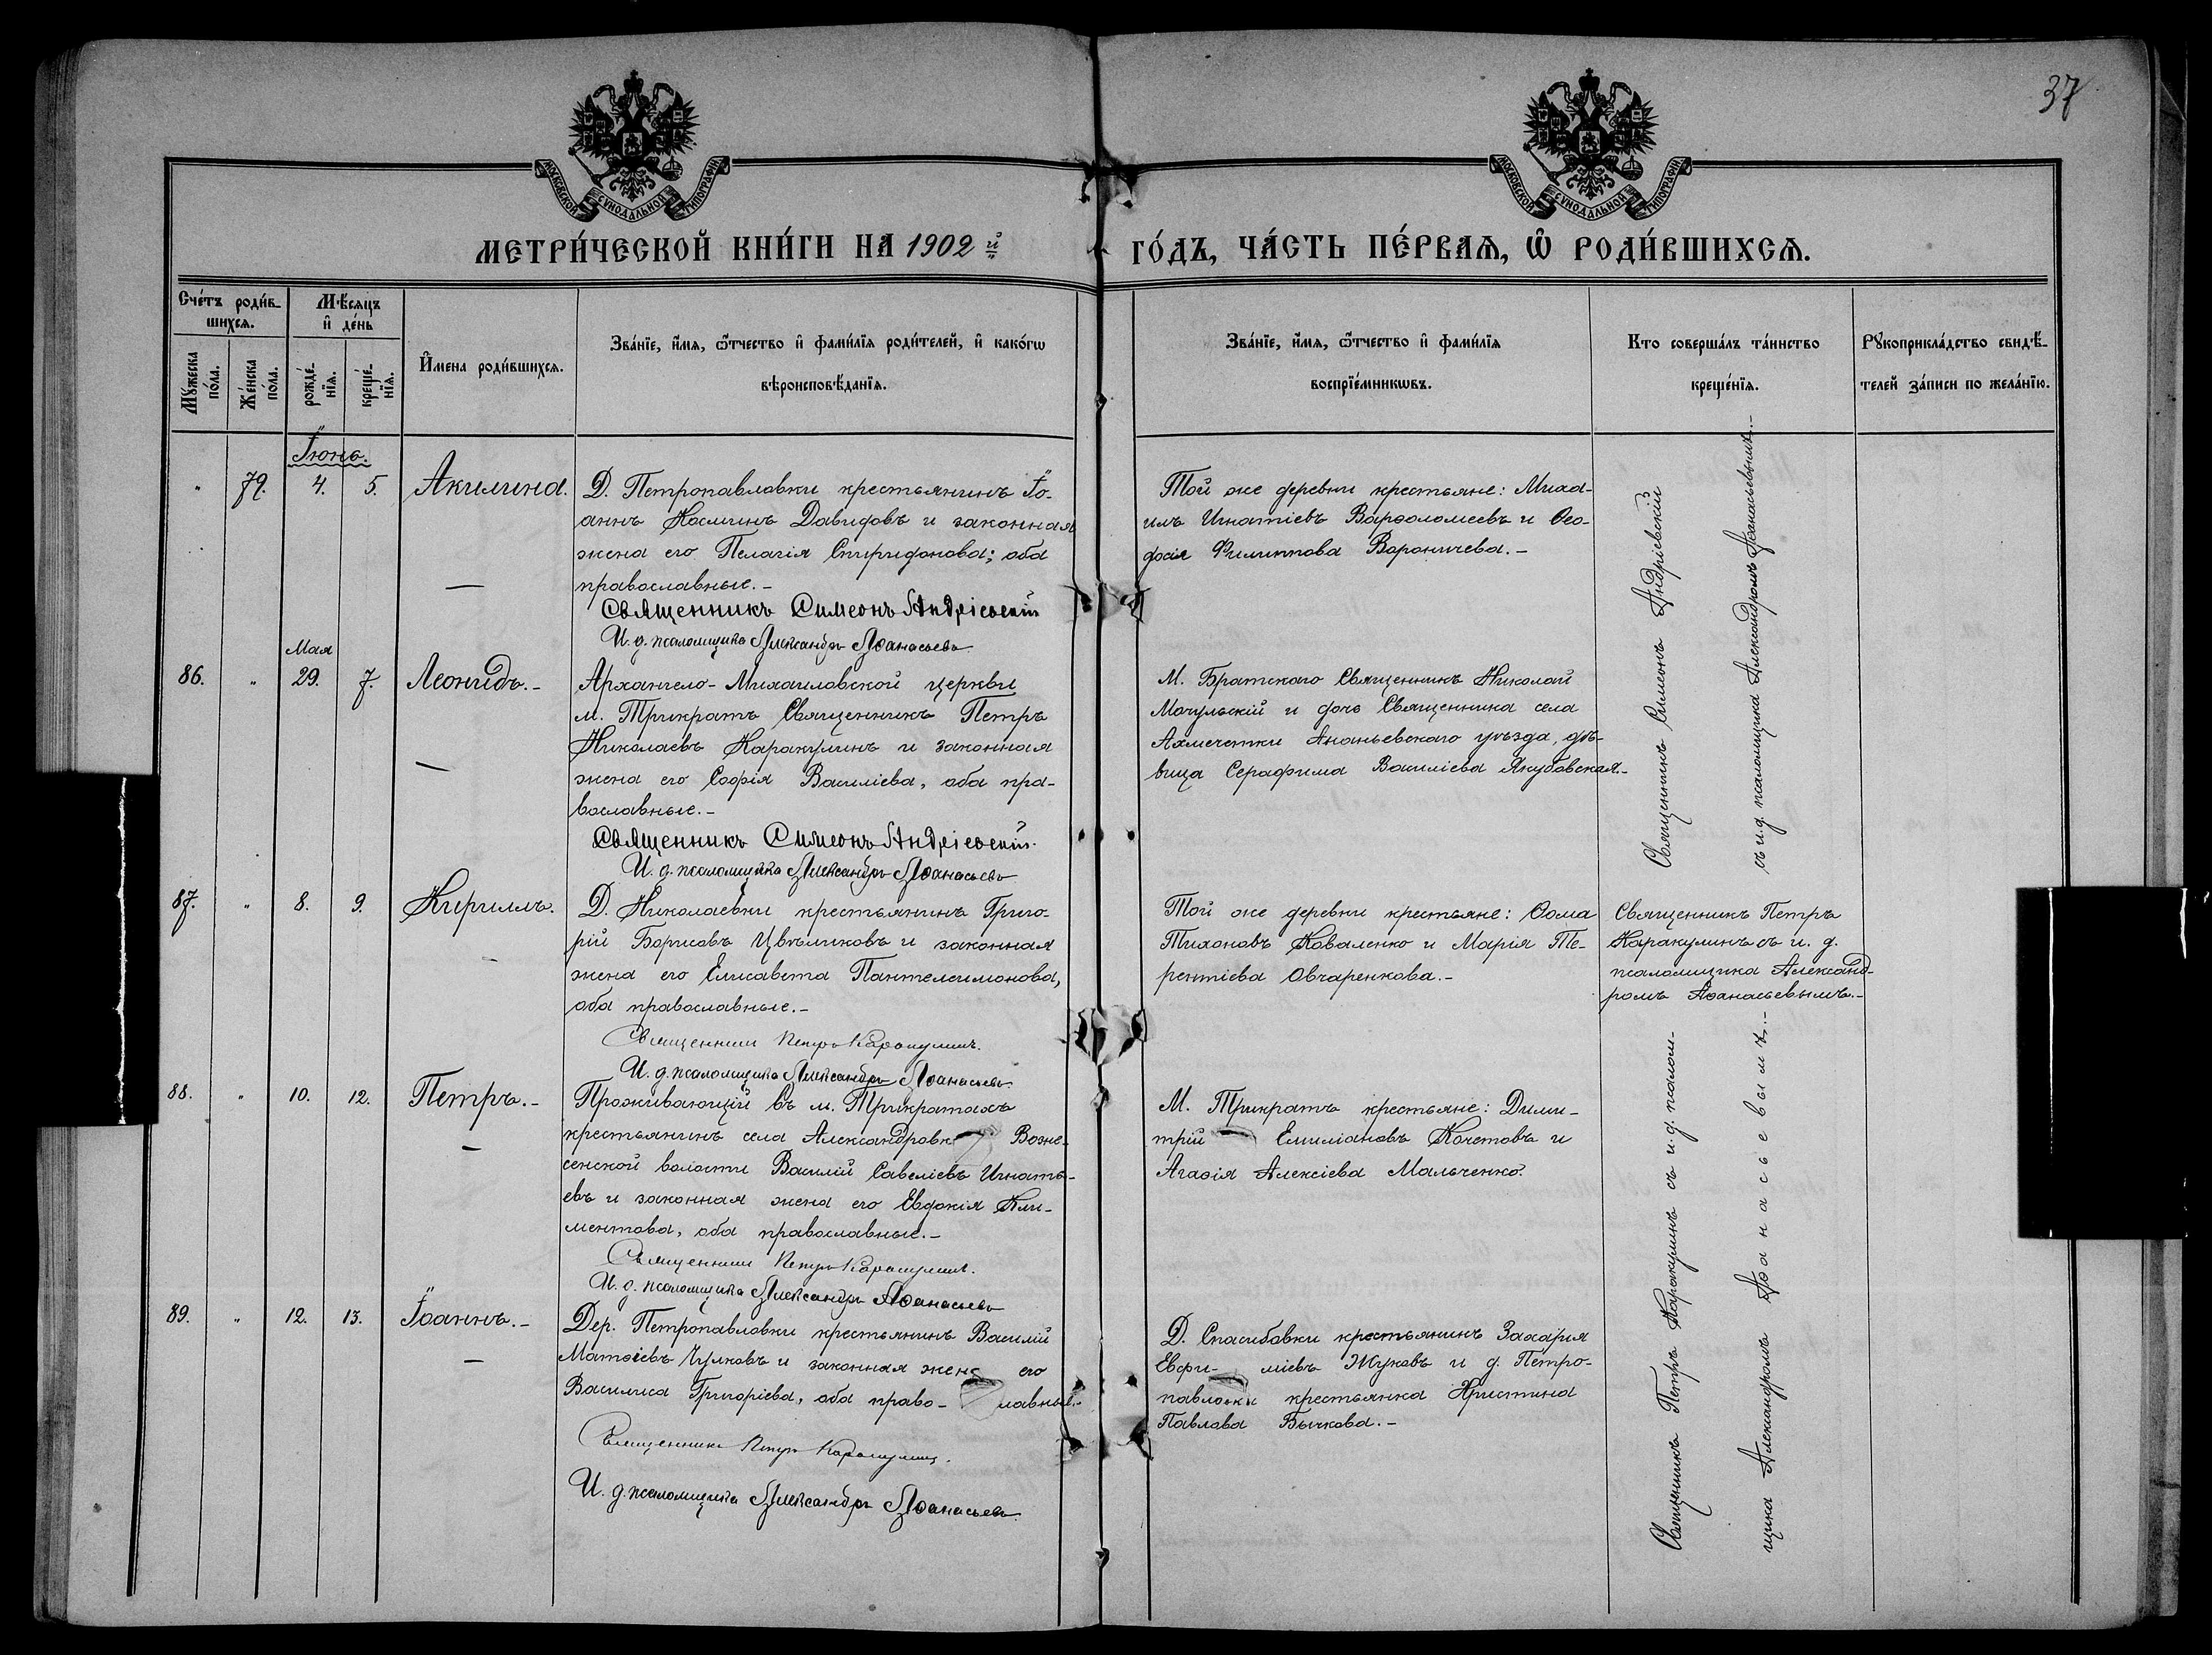 37
МОСКОВСКОЙ СѴНОДАЛЬНОЙ ТИПОГРАФІИ
МОСКОВСКОЙ СѴНОДАЛЬНОЙ ТИПОГРАФІИ
МЕТРИ́ЧЕСКОЙ КНИ́ГИ НА 1902 й
ГО́ДЪ, ЧА́СТЬ ПЕ́РВАѦ, Ѡ҆ РОДИ́ВШИХСѦ.
Сче́тъ роди́в-
шихсѧ.
Мꙋ́жеска по́ла.
Же́нска по́ла.
Мѣ́сѧцъ
и҆ де́нь
рожде́-
нїѧ.
креще́-
нїѧ.
И҆́мена роди́вшихсѧ.
Зва́нїе, и҆́мѧ, ѻ҆́тчество и҆ фами́лїѧ роди́телей, и҆ како́гѡ
вѣроисповѣ́данїѧ.
Зва́нїе, и҆́мѧ, ѻ҆́тчество и҆ фами́лїѧ
воспрїе́мникѡвъ.
Кто соверша́лъ та́инство
креще́нїѧ.
Рꙋкоприкла́дство свидѣ́-
телей за́писи по жела́нїю.
Іюнь.
" 79. 4. 5. Акилина.
Д. Петропавловки крестьянинъ Іо-
аннъ Косминъ Давидовъ и законная
жена его Пелагія Спиридонова; оба
православные.-
Священникъ Симеонъ Андріевскій
И. д. псаломщика Александръ Аѳанасьевъ
Той же деревни крестьяне: Миха-
илъ Игнатіевъ Варѳоломеевъ и Ѳео-
досія Филиппова Вороничева.-
Священникъ Симеонъ Андріевскій
съ и. д. псаломщика Александромъ Аѳанасьевымъ.-
Мая
86. " 29. 7. Леонидъ.-
Архангело-Михаиловской церкви
м. Трикратъ Священникъ Петръ
Николаевъ Каракулинъ и законная
жена его Софія Василіева, оба пра-
вославные.-
Священникъ Симеонъ Андріевскій.
И. д. псаломщика Александръ Аѳанасьевъ
М. Братскаго Священникъ Николай
Мочульскій и дочь Священника села
Ахмечетки Ананьевскаго уѣзда, дѣ-
вица Серафима Василіева Якубовская.-
87. " 8. 9. Кириллъ.
Д. Николаевки крестьянинъ Григо-
рій Борисовъ Цвѣликовъ и законная
жена его Елисавета Пантелеимонова,
оба православные.-
Священникъ Петръ Каракулинъ.
И. д. псаломщика Александръ Аѳанасьевъ.
Той же деревни крестьяне: Ѳома
Тихоновъ Коваленко и Марія Те-
рентіева Овчаренкова.-
Священникъ Петръ
Каракулинъ съ и. д.
псаломщика Александ-
ромъ Аѳанасьевымъ.-
88. " 10. 12. Петръ.-
Проживающій въ м. Трикратахъ
крестьянинъ села Александровк Возне-
сенской волости Василій Савеліевъ Игнать-
евъ и законная жена его Евдокія Кли-
ментова, оба православные.-
Священникъ Петръ Каракулинъ.
И. д. псаломщика Александръ Аѳанасьевъ
М. Трикратъ крестьяне: Дими-
трій Емиліановъ Кочетовъ и
Агаѳія Алексіева Мальченко.
Священникъ Петръ Каракулинъ съ и. д. псалом-
щика Александромъ Аѳанасьевымъ.-
89. " 12. 13. Іоаннъ.-
Дер. Петропавловки крестьянинъ Василій
Матѳіевъ Чулковъ и законная жена его
Василиса Григоріева, оба право- лавные.-
Священникъ Петръ Каракулинъ.
И. д. псаломщика Александръ Аѳанасьевъ.
Д. Спасибовки крестьянинъ Захарія
Евфи- міевъ Жуковъ и д. Петро-
павловки крестьянка Христина
Павлова Бычкова.-